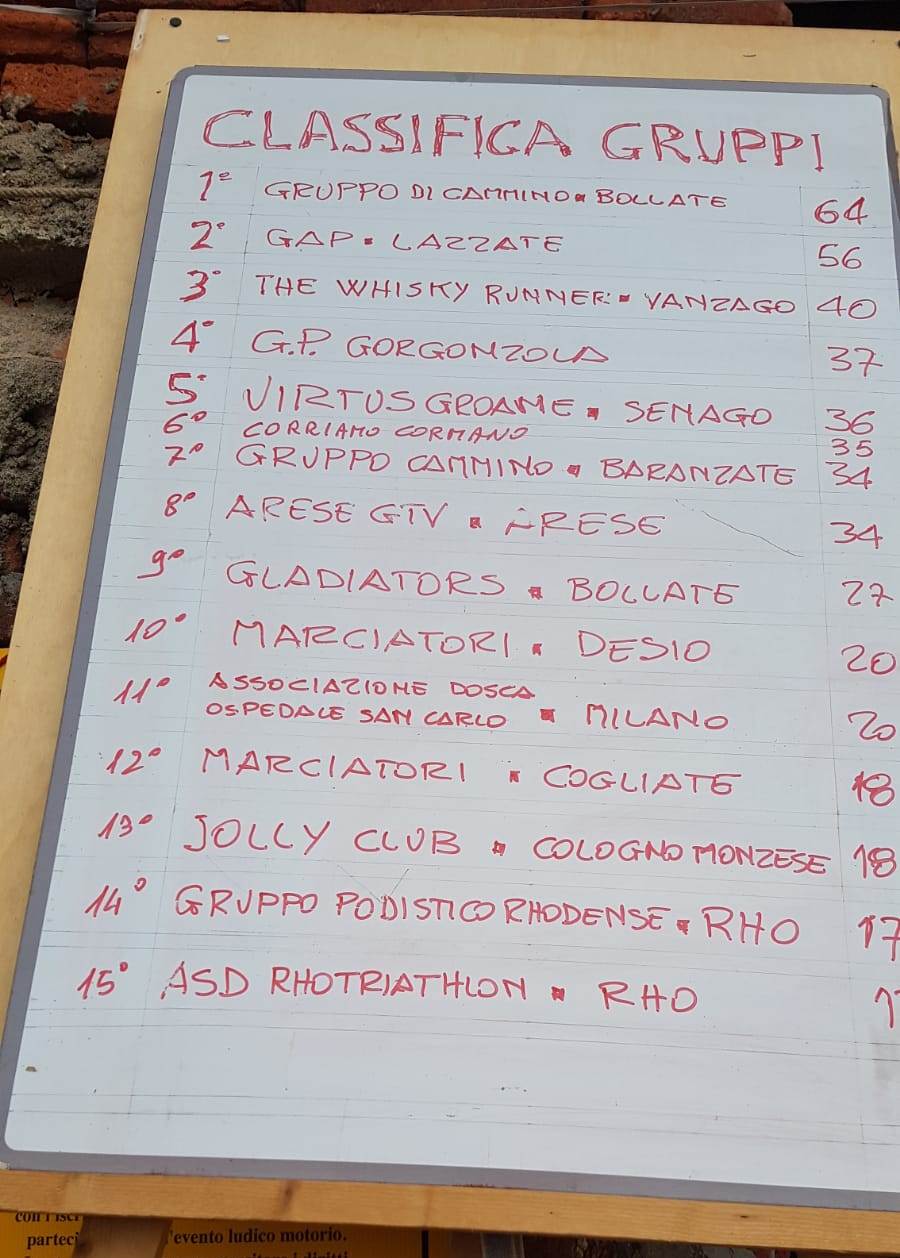 CLASSIFICA GRUPPI
1° GRUPPO DI CAMMINO • BOLLATE 64
2° GAP • LAZZATE 56
3° THE WHISKY RUNNER • VANZAGO 40
4° G.P. GORGONZOLA 37
5° VIRTUS GROANE • SENAGO 36
6° CORRIAMO CORMANO 35
7° GRUPPO CAMMINO • BARANZATE 34
8° ARESE GTV • ARESE 34
9° GLADIATORS • BOLLATE 27
10° MARCIATORI • DESIO 20
11° ASSOCIAZIONE DOSCA
OSPEDALE SAN CARLO • MILANO 20
12° MARCIATORI • COGLIATE 18
13° JOLLY CLUB • COLOGNO MONZESE 18
14° GRUPPO PODISTICO RHODENSE • RHO 17
15° ASD RHOTRIATHLON • RHO
parteci
'evento ludico motorio.